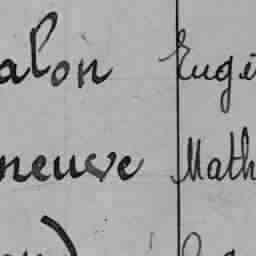 alon Eugé
neuve Math